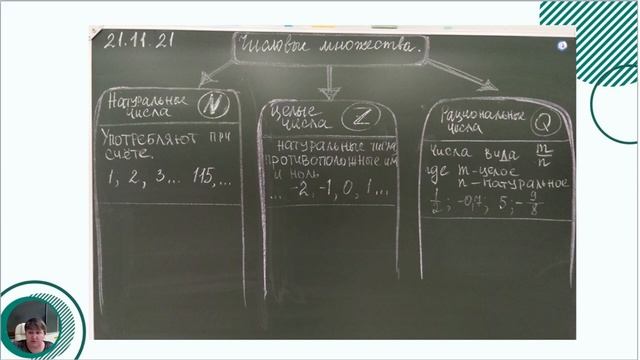 21.11.21
Числовые множества.
Натуральные
числа
N
Употребляют при
счёте.
1, 2, 3... 115,...
Целые
числа
Z
натуральные числа
противоположные им
и ноль
... -2, -1, 0, 1...
Рациональные
числа
Q
числа вида m/n
где m-целое
n-натуральное
1/2; -0,7; 5; -9/8